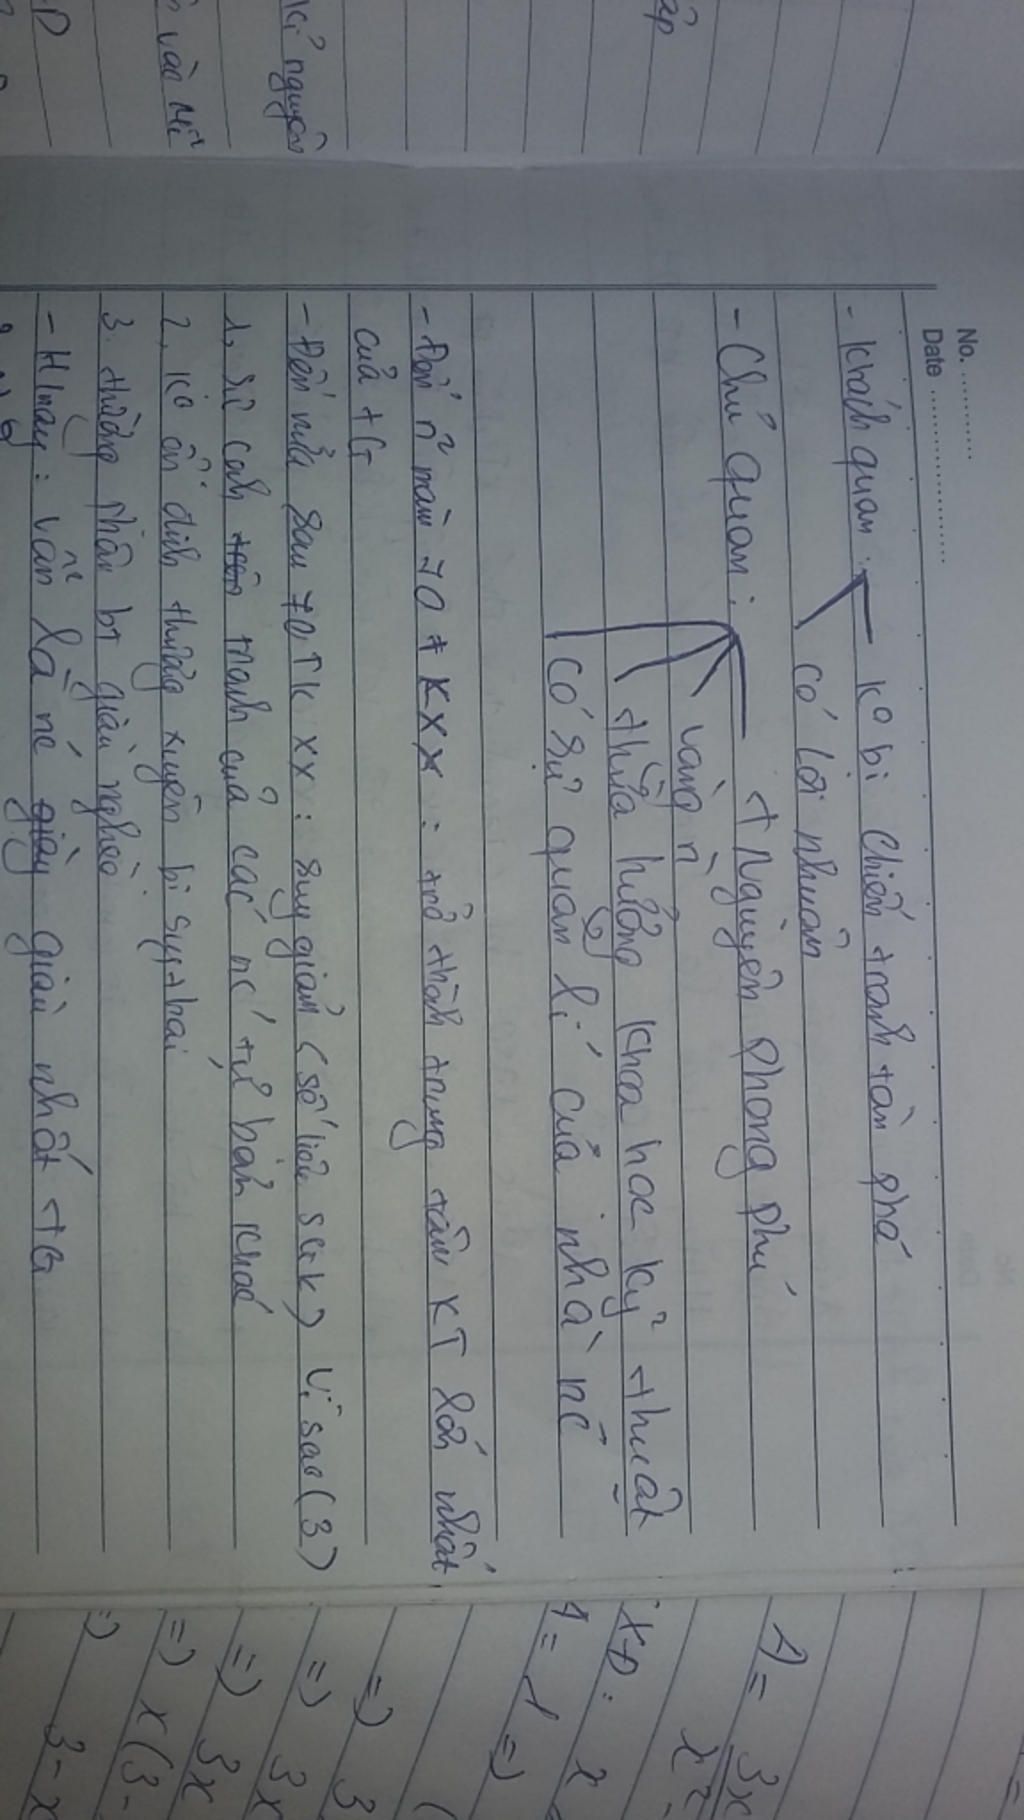 No. ............
Date .....................
- Khách quan : kº bị chiến tranh tàn phá
có lợi nhuận
- Chủ quan : + Nguyên phong phú
vàng
thừa hưởng khoa học kỹ thuật
có sự quản lí của nhà nc
- Đến năm 70 tKXX : trở thành trung tâm KT lớn nhất
của tG
- Đến nửa sau 70 TK XX : suy giảm (số liệu sGK) Vì sao (3)
1, sự cạnh tranh của các nc tư bản khác
2, kº ổn định thường xuyên bị suy thoái
3. thường phân bt giàu nghèo
- H nay : vẫn là nc giàu nhất tG
ập
kỉ nguyên
vào Mĩ
D
1) = 3x
x² -
XĐ : x
1 = 1 =>
=> 3
=> 3x
=> 3x
=> x(3-
=> 3-x